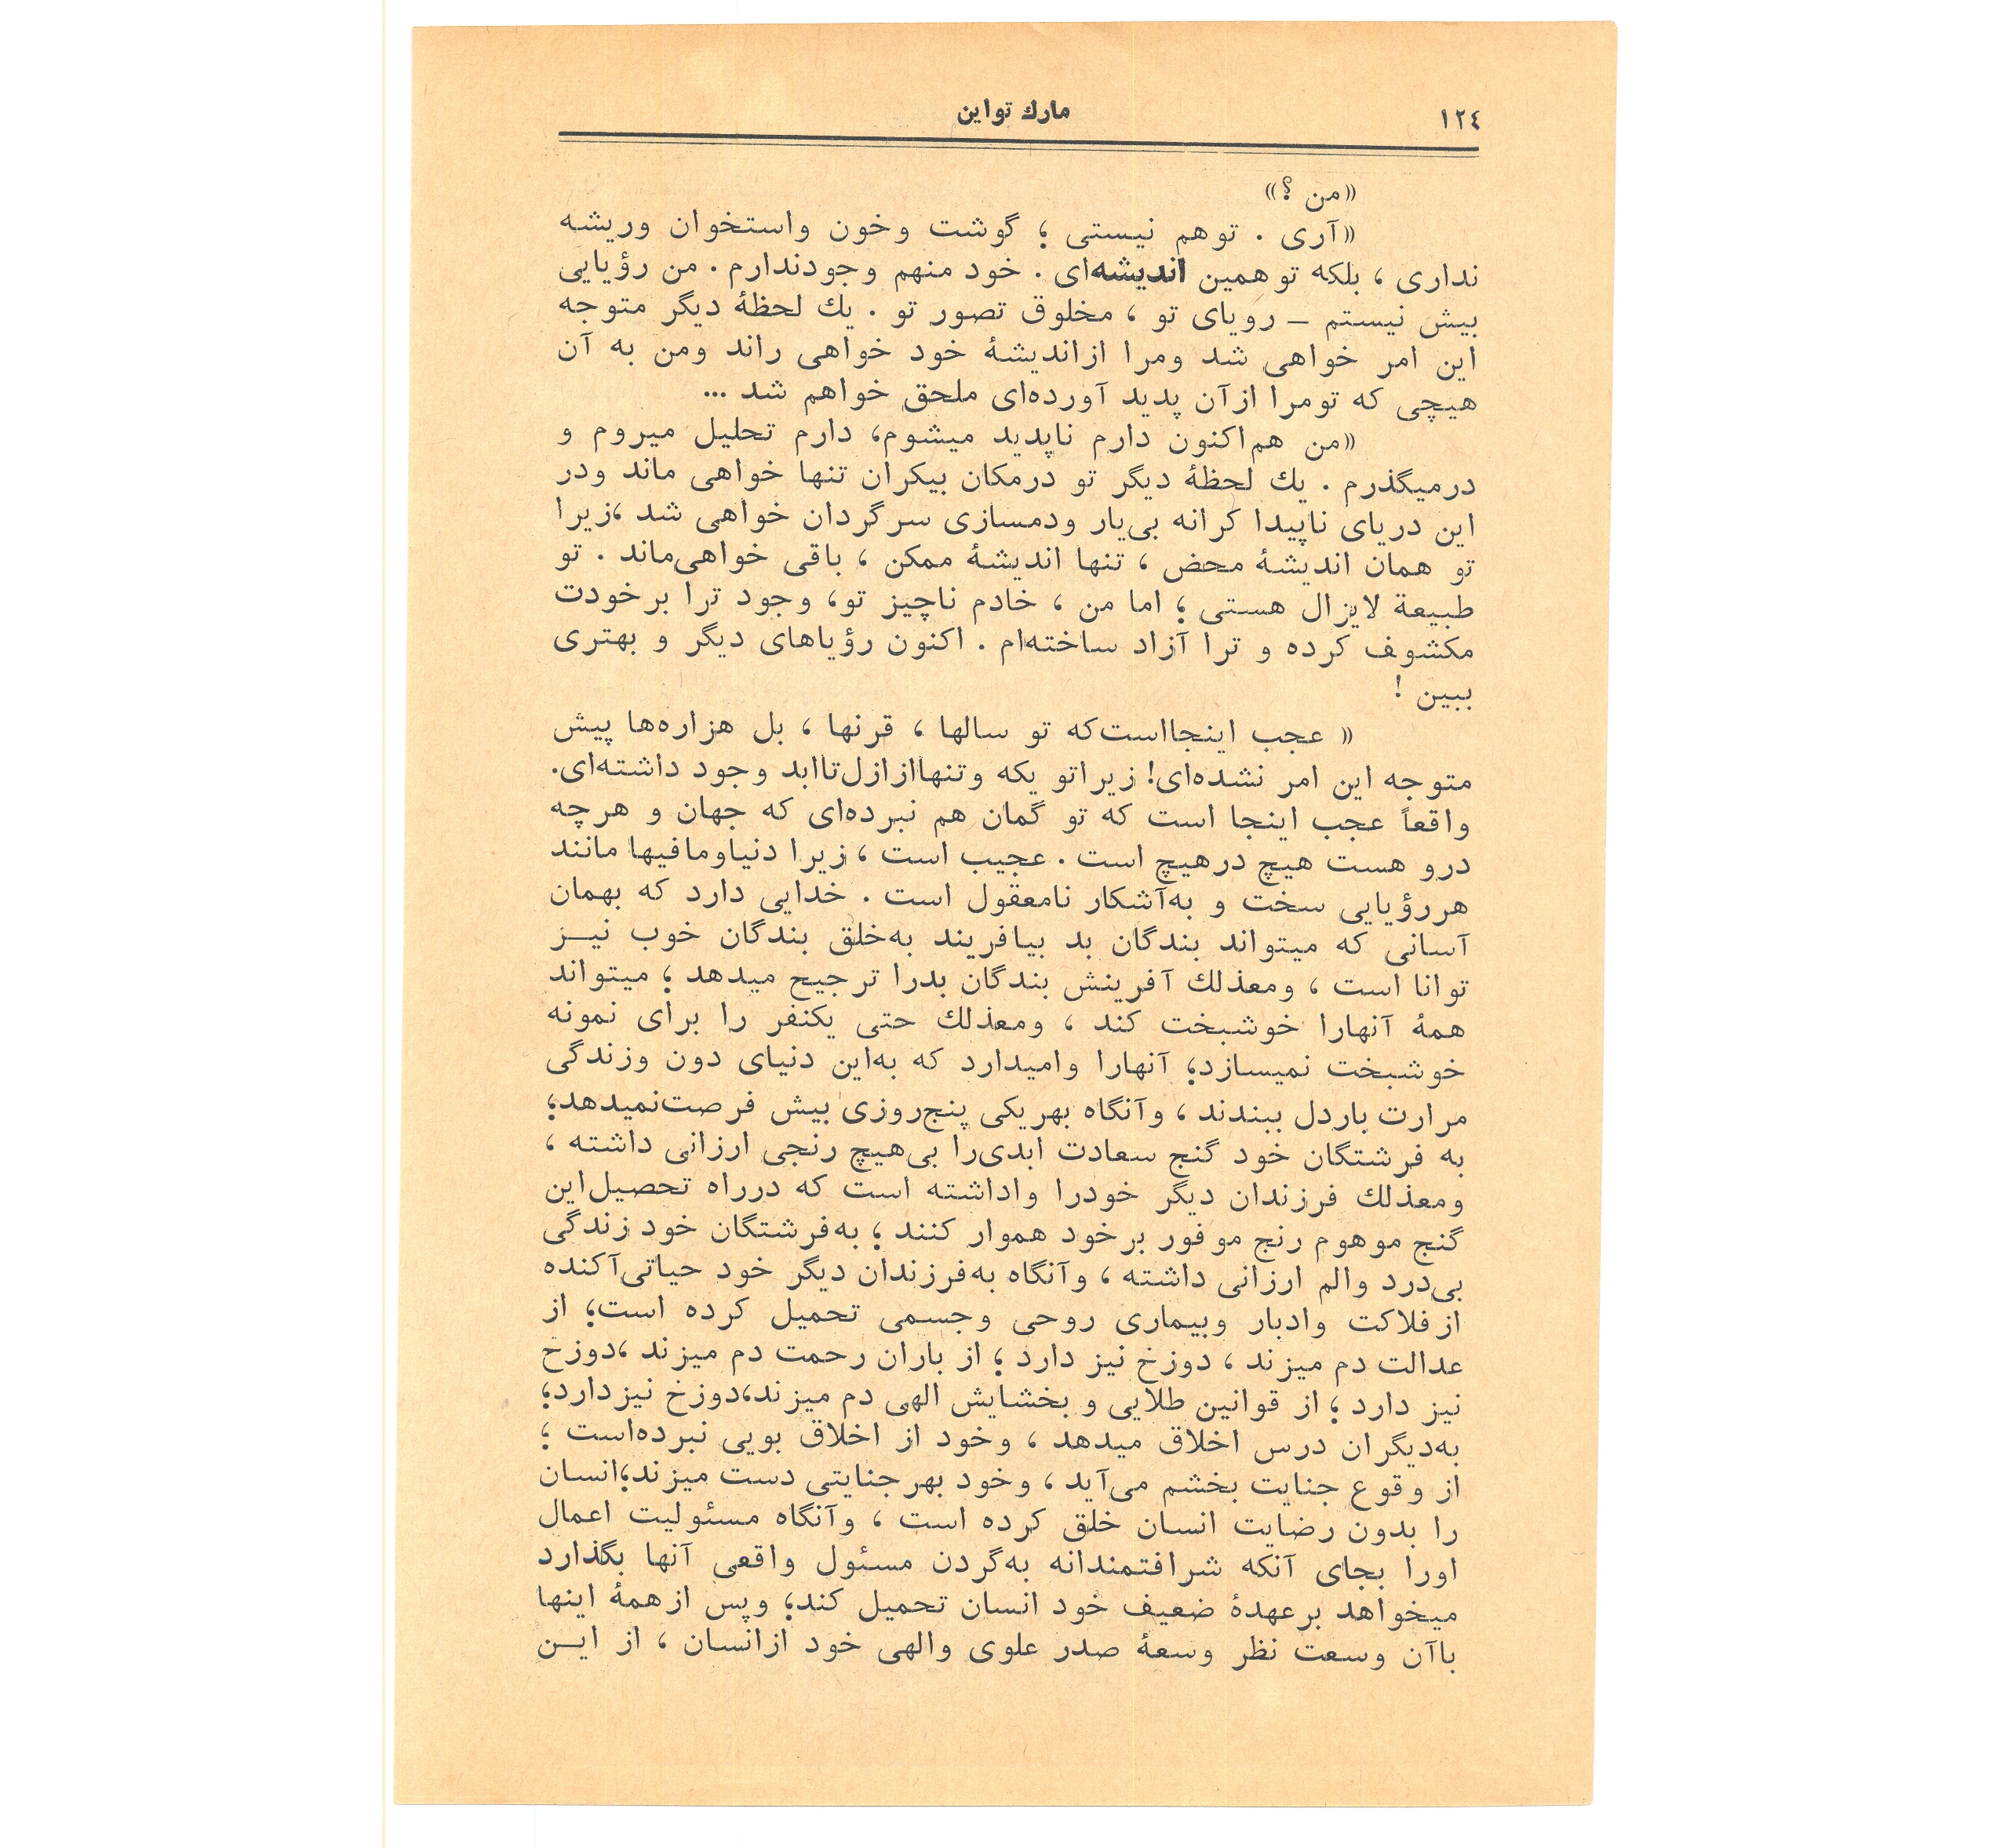 ١٢٤
مارك تواین
«من ؟»
«آری . توهم نیستی ؛ گوشت وخون واستخوان وریشه
نداری ، بلکه توهمین اندیشه‌ای . خود منهم وجودندارم . من رؤیایی
بیش نیستم – رویای تو ، مخلوق تصور تو . یك لحظهٔ دیگر متوجه
این امر خواهی شد ومرا ازاندیشهٔ خود خواهی راند ومن به آن
هیچی که تومرا ازآن پدید آورده‌ای ملحق خواهم شد ...
«من هم‌اکنون دارم ناپدید میشوم، دارم تحلیل میروم و
درمیگذرم . یك لحظهٔ دیگر تو درمکان بیکران تنها خواهی ماند ودر
این دریای ناپیدا کرانه بی‌یار ودمسازی سرگردان خواهی شد ،زیرا
تو همان اندیشهٔ محض ، تنها اندیشهٔ ممکن ، باقی خواهی‌ماند . تو
طبیعة لایزال هستی ؛ اما من ، خادم ناچیز تو، وجود ترا برخودت
مکشوف کرده و ترا آزاد ساخته‌ام . اکنون رؤیاهای دیگر و بهتری
ببین !
« عجب اینجااست‌که تو سالها ، قرنها ، بل هزاره‌ها پیش
متوجه این امر نشده‌ای! زیراتو یکه وتنهاازازل‌تاابد وجود داشته‌ای.
واقعاً عجب اینجا است که تو گمان هم نبرده‌ای که جهان و هرچه
درو هست هیچ درهیچ است . عجیب است ، زیرا دنیاومافیها مانند
هررؤیایی سخت و به‌آشکار نامعقول است . خدایی دارد که بهمان
آسانی که میتواند بندگان بد بیافریند به‌خلق بندگان خوب نیــز
توانا است ، ومعذلك آفرینش بندگان بدرا ترجیح میدهد ؛ میتواند
همهٔ آنهارا خوشبخت کند ، ومعذلك حتی یکنفر را برای نمونه
خوشبخت نمیسازد؛ آنهارا وامیدارد که به‌این دنیای دون وزندگی
مرارت باردل ببندند ، وآنگاه بهریکی پنج‌روزی بیش فرصت‌نمیدهد؛
به فرشتگان خود گنج سعادت ابدی‌را بی‌هیچ رنجی ارزانی داشته ،
ومعذلك فرزندان دیگر خودرا واداشته است که درراه تحصیل‌این
گنج موهوم رنج موفور برخود هموار کنند ؛ به‌فرشتگان خود زندگی
بی‌درد والم ارزانی داشته ، وآنگاه به‌فرزندان دیگر خود حیاتی‌آکنده
ازفلاکت وادبار وبیماری روحی وجسمی تحمیل کرده است؛ از
عدالت دم میزند ، دوزخ نیز دارد ؛ از باران رحمت دم میزند ،دوزخ
نیز دارد ؛ از قوانین طلایی و بخشایش الهی دم میزند،دوزخ نیزدارد؛
به‌دیگران درس اخلاق میدهد ، وخود از اخلاق بویی نبرده‌است ؛
از وقوع جنایت بخشم می‌آید ، وخود بهرجنایتی دست میزند؛انسان
را بدون رضایت انسان خلق کرده است ، وآنگاه مسئولیت اعمال
اورا بجای آنکه شرافتمندانه به‌گردن مسئول واقعی آنها بگذارد
میخواهد برعهدهٔ ضعیف خود انسان تحمیل کند؛ وپس ازهمهٔ اینها
باآن وسعت نظر وسعهٔ صدر علوی والهی خود ازانسان ، از ایــن